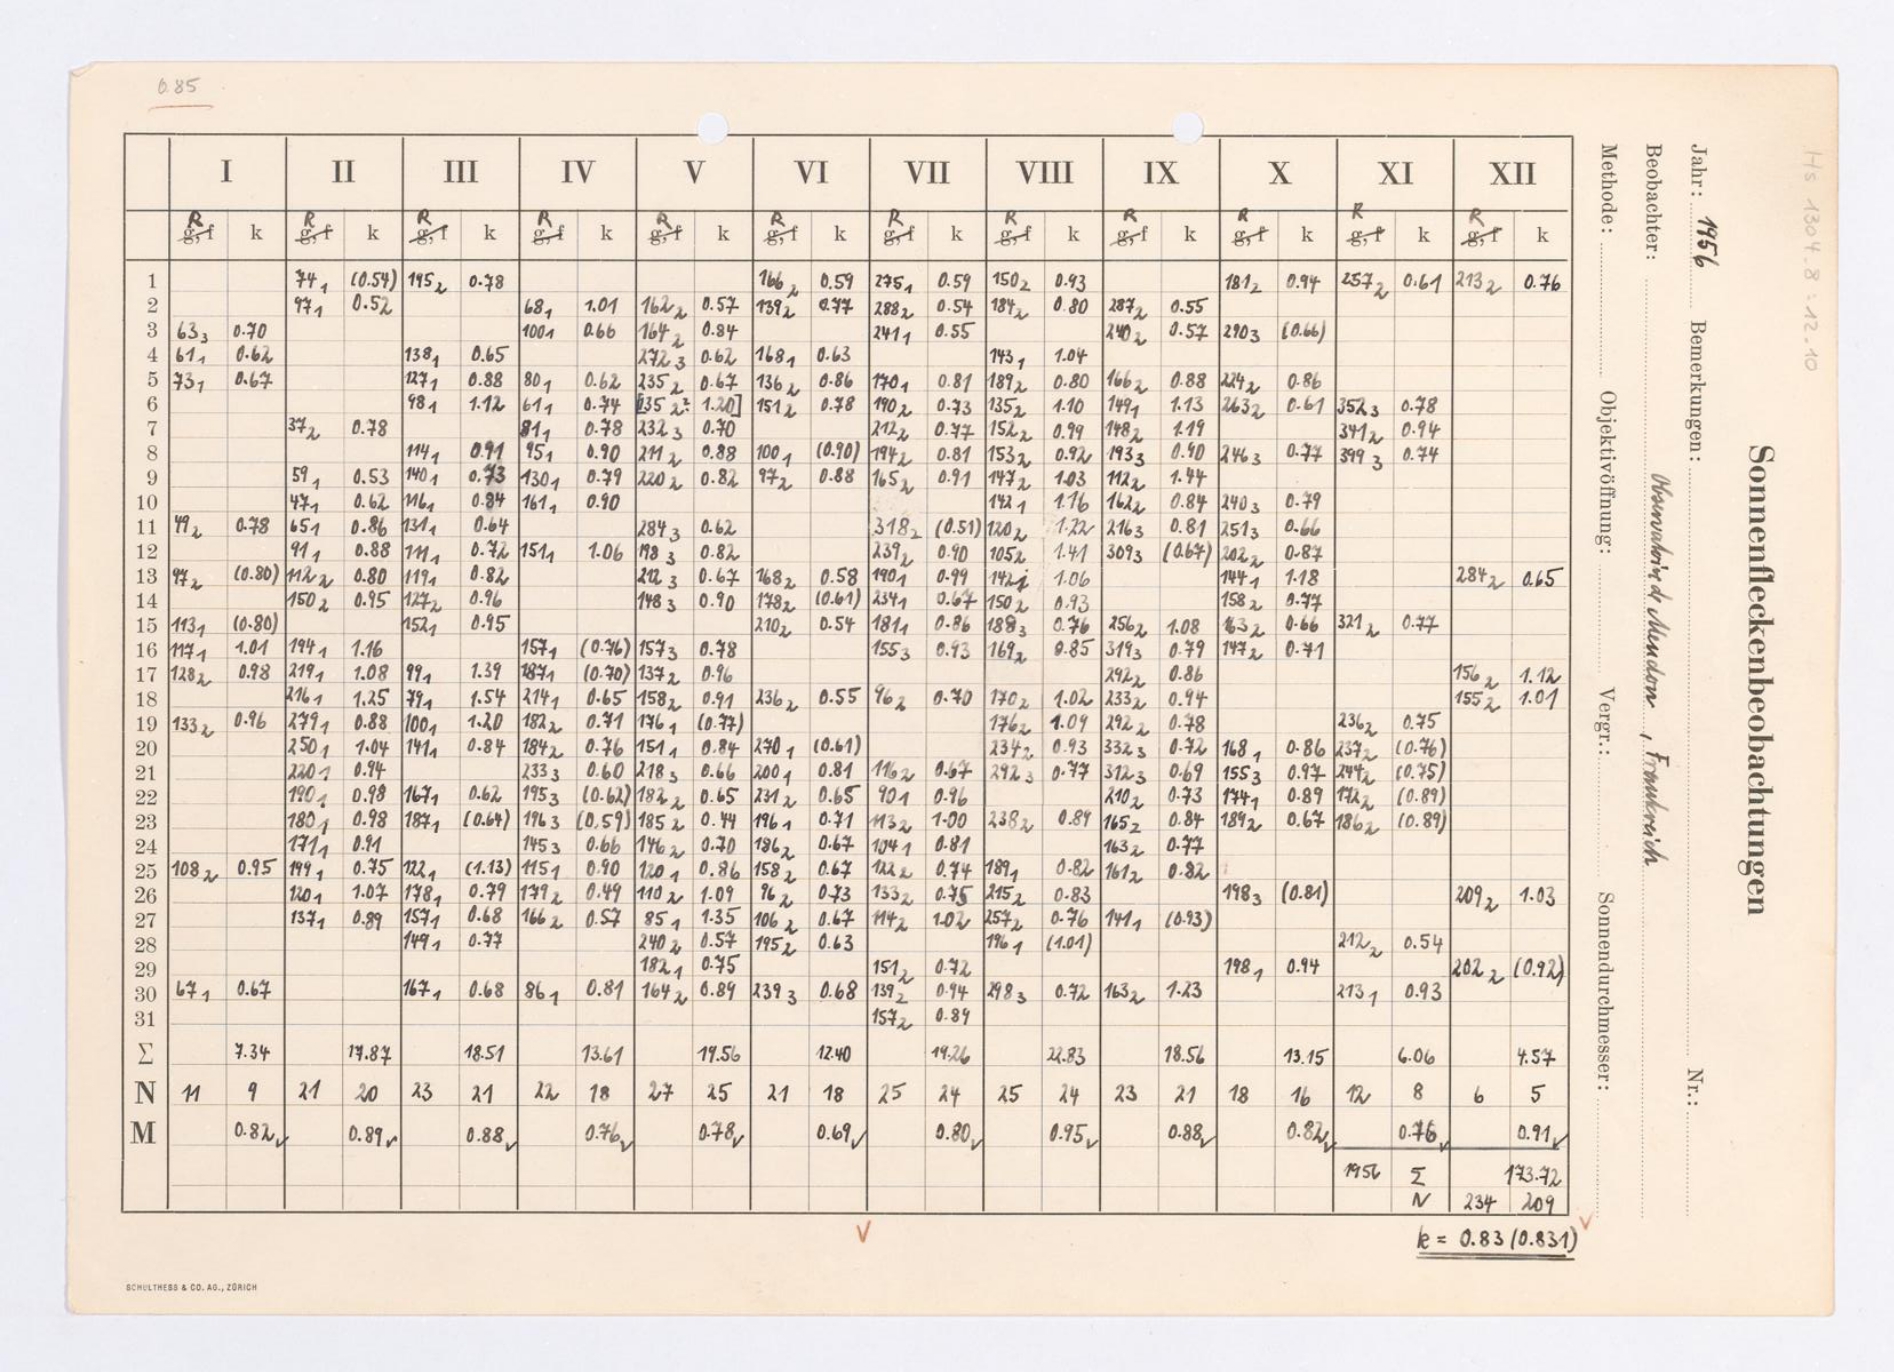 0.85
I II III IV V VI VII VIII IX X XI XII
R g, f k R g, f k R g, f k R g, f k R g, f k R g, f k R g, f k R g, f k R g, f k R g, f k R g, f k R g, f k
1 74₁ (0.54) 195₂ 0.78 166₂ 0.59 275₁ 0.59 150₂ 0.93 181₂ 0.94 257₂ 0.61 213₂ 0.76
2 97₁ 0.52 68₁ 1.01 162₂ 0.57 139₂ 0.77 288₂ 0.54 184₂ 0.80 287₂ 0.55
3 63₃ 0.70 100₁ 0.66 164₂ 0.84 241₁ 0.55 240₂ 0.57 290₃ (0.66)
4 61₁ 0.62 138₁ 0.65 272₃ 0.62 168₁ 0.63 143₁ 1.04
5 73₁ 0.67 127₁ 0.88 80₁ 0.62 235₂ 0.67 136₂ 0.86 170₁ 0.81 189₂ 0.80 166₂ 0.88 224₂ 0.86
6 98₁ 1.12 61₁ 0.74 [135₂? 1.20] 151₂ 0.78 190₂ 0.73 135₂ 1.10 149₁ 1.13 263₂ 0.61 352₃ 0.78
7 37₂ 0.78 81₁ 0.78 232₃ 0.70 212₂ 0.77 152₂ 0.99 148₂ 1.19 341₂ 0.94
8 114₁ 0.91 95₁ 0.90 211₂ 0.88 100₁ (0.90) 194₂ 0.81 153₂ 0.92 193₃ 0.90 246₃ 0.77 399₃ 0.74
9 59₁ 0.53 140₁ 0.73 130₁ 0.79 220₂ 0.82 97₂ 0.88 165₂ 0.91 147₂ 1.03 112₂ 1.44
10 47₁ 0.62 116₁ 0.84 161₁ 0.90 142₁ 1.16 162₂ 0.84 240₃ 0.79
11 49₂ 0.78 65₁ 0.86 131₁ 0.64 284₃ 0.62 318₂ (0.51) 120₂ 1.22 216₃ 0.81 251₃ 0.66
12 91₁ 0.88 111₁ 0.72 151₁ 1.06 198₃ 0.82 239₂ 0.90 105₂ 1.41 309₃ (0.67) 202₂ 0.87
13 97₂ (0.80) 112₂ 0.80 119₁ 0.82 212₃ 0.67 168₂ 0.58 190₁ 0.99 142₁ 1.06 144₁ 1.18 284₂ 0.65
14 150₂ 0.95 127₂ 0.96 148₃ 0.90 178₂ (0.61) 234₁ 0.67 150₂ 0.93 158₂ 0.77
15 113₁ (0.80) 152₁ 0.95 210₂ 0.54 181₁ 0.86 188₃ 0.76 256₂ 1.08 163₂ 0.66 321₂ 0.77
16 117₁ 1.01 194₁ 1.16 157₁ (0.76) 157₃ 0.78 155₃ 0.93 169₂ 0.85 319₃ 0.79 147₂ 0.71
17 128₂ 0.98 219₁ 1.08 99₁ 1.39 187₁ (0.70) 137₂ 0.96 292₂ 0.86 156₂ 1.12
18 216₁ 1.25 79₁ 1.54 214₁ 0.65 158₂ 0.91 236₂ 0.55 96₂ 0.70 170₂ 1.02 233₂ 0.94 155₂ 1.01
19 133₂ 0.96 279₁ 0.88 100₁ 1.20 182₂ 0.71 176₁ (0.77) 176₂ 1.09 292₂ 0.78 236₂ 0.75
20 250₁ 1.04 141₁ 0.84 184₂ 0.76 151₁ 0.84 270₁ (0.61) 234₂ 0.93 332₃ 0.72 168₁ 0.86 237₂ (0.76)
21 220₁ 0.94 233₃ 0.60 218₃ 0.66 200₁ 0.81 116₂ 0.67 292₃ 0.77 312₃ 0.69 155₃ 0.97 244₂ (0.75)
22 190₁ 0.98 167₁ 0.62 195₃ (0.62) 182₂ 0.65 231₂ 0.65 90₁ 0.96 210₂ 0.73 174₁ 0.89 172₂ (0.89)
23 180₁ 0.98 187₁ (0.64) 196₃ (0.59) 185₂ 0.44 196₁ 0.71 113₂ 1.00 238₂ 0.89 165₂ 0.84 189₂ 0.67 186₂ (0.89)
24 171₁ 0.91 145₃ 0.66 146₂ 0.70 186₂ 0.67 104₁ 0.81 163₂ 0.77
25 108₂ 0.95 199₁ 0.75 122₁ (1.13) 115₁ 0.90 120₁ 0.86 158₂ 0.67 122₂ 0.74 189₁ 0.82 161₂ 0.82
26 120₁ 1.07 178₁ 0.79 179₂ 0.49 110₂ 1.09 96₂ 0.73 133₂ 0.75 215₂ 0.83 198₃ (0.81) 209₂ 1.03
27 137₁ 0.89 157₁ 0.68 166₂ 0.57 85₁ 1.35 106₂ 0.67 114₂ 1.02 257₂ 0.76 141₁ (0.93)
28 149₁ 0.77 240₂ 0.57 195₂ 0.63 196₁ (1.01) 212₂ 0.54
29 182₁ 0.75 151₂ 0.72 198₁ 0.94 202₂ (0.92)
30 67₁ 0.67 167₁ 0.68 86₁ 0.81 164₂ 0.89 239₃ 0.68 139₂ 0.94 298₃ 0.72 163₂ 1.23 213₁ 0.93
31 157₂ 0.89
Σ 7.34 17.87 18.51 13.61 19.56 12.40 19.26 22.83 18.56 13.15 6.06 4.57
N 11 9 21 20 23 21 22 18 27 25 21 18 25 24 25 24 23 21 18 16 12 8 6 5
M 0.82 0.89 0.88 0.76 0.78 0.69 0.80 0.95 0.88 0.82 0.76 0.91
1956 Σ 173.72
N 234 209
k = 0.83 (0.831)
SCHULTHESS & CO. AG., ZÜRICH
Sonnenfleckenbeobachtungen
Jahr: 1956 Bemerkungen: Nr.:
Beobachter: Observatoire de Meudon, Frankreich
Methode: Objektivöffnung: Vergr.: Sonnendurchmesser:
Hs 1304.8:12.10